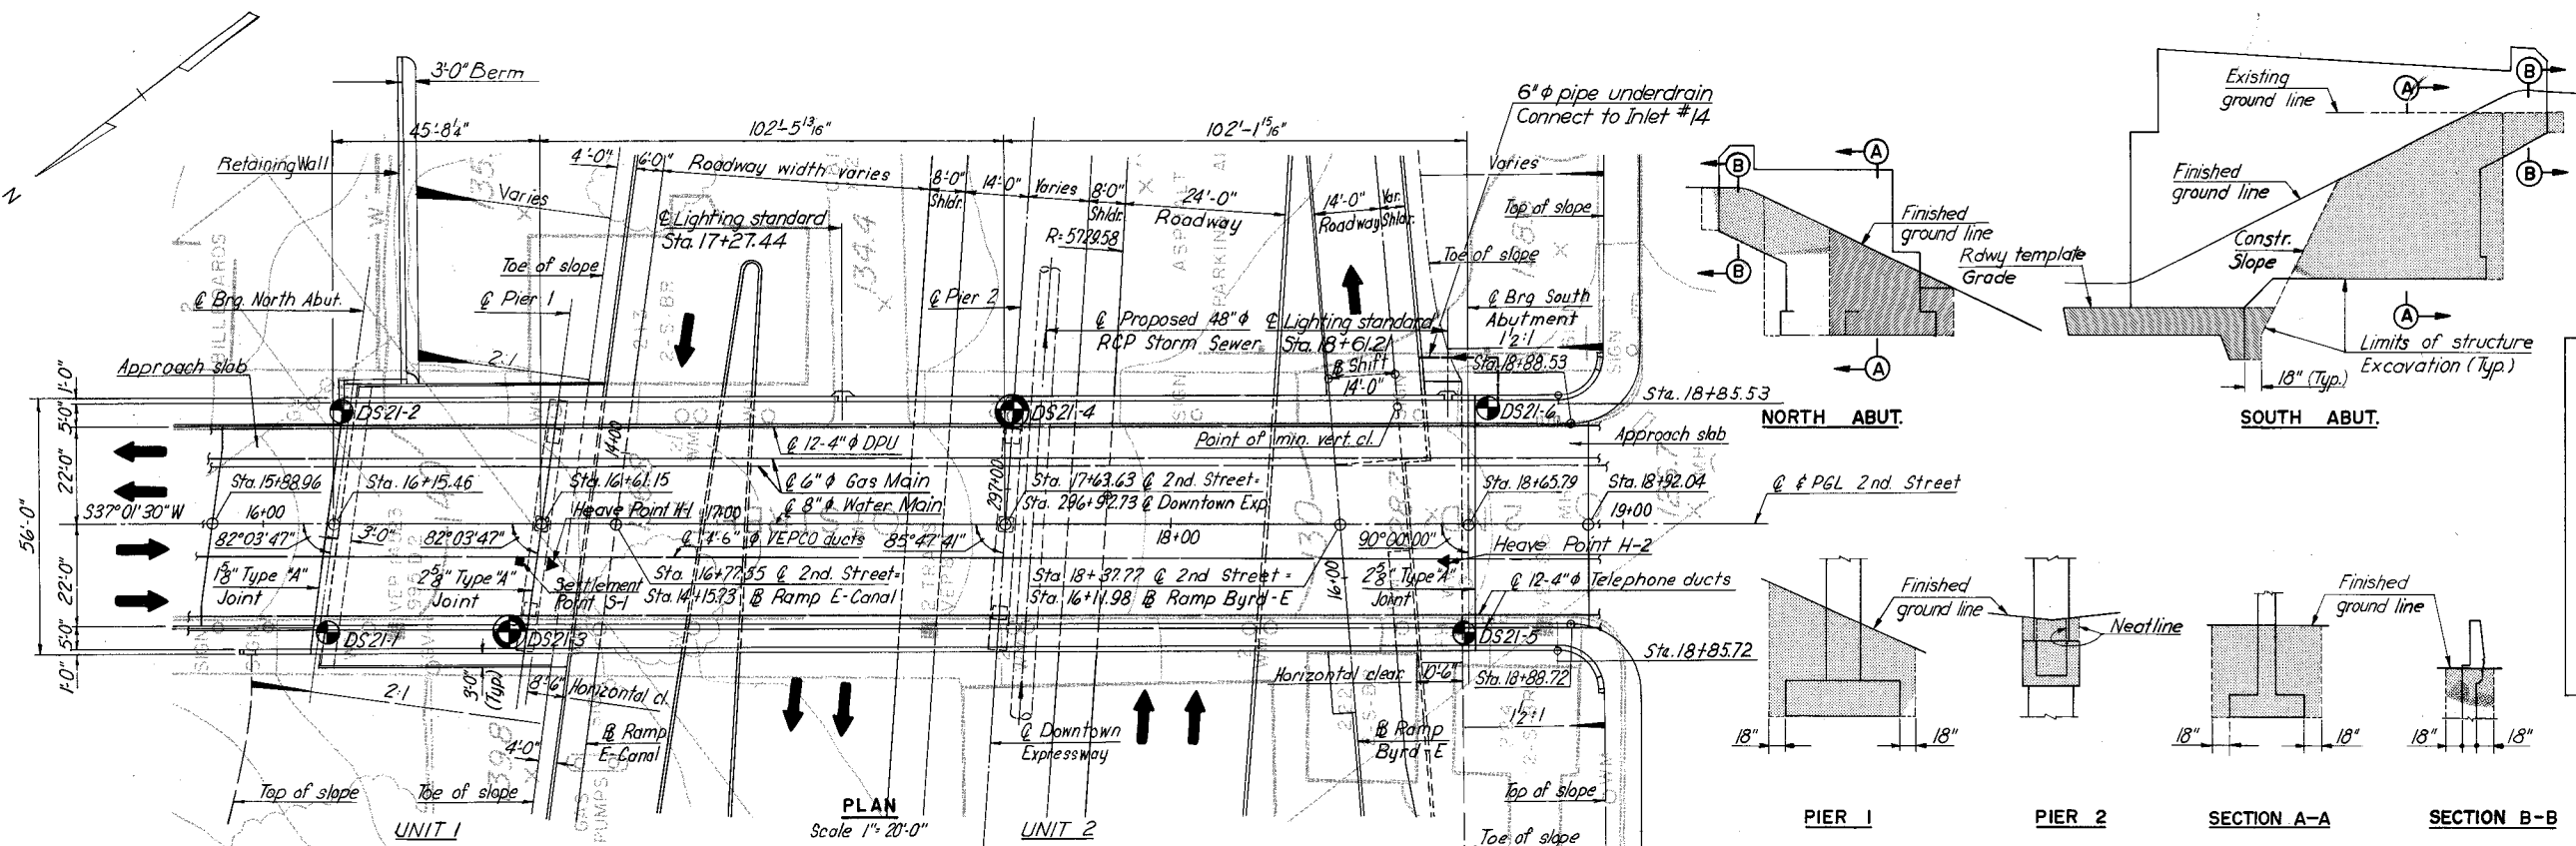 3'-0" Berm
6" ϕ pipe underdrain
Connect to Inlet #14
45'-8¼"
102'-5 13/16"
102'-1 15/16"
Retaining Wall
Varies
4'-0"
6'-0"
Roadway width varies
8'-0"
Shldr.
14'-0"
Varies
8'-0"
Shldr.
24'-0"
Roadway
14'-0"
Roadway
Var.
Shldr.
Varies
Top of slope
℄ Lighting standard
Sta. 17+27.44
R=5729.58
Toe of slope
Toe of slope
N
℄ Brg. North Abut.
℄ Pier 1
℄ Pier 2
℄ Proposed 48" ϕ
RCP Storm Sewer
℄ Lighting standard
Sta. 18+61.21
℄ Brg South
Abutment
1½:1
Sta. 18+88.53
BILLBOARDS
ASPHALT
PARKING
SIGN
2:1
Approach slab
B Shift
14'-0"
Sta. 18+85.53
1'-0"
5'-0"
22'-0"
56'-0"
22'-0"
5'-0"
1'-0"
DS21-2
DS21-4
DS21-6
14+00
℄ 12-4" ϕ DPU
Point of min. vert. cl.
Approach slab
℄ 6" ϕ Gas Main
℄ 8" ϕ Water Main
297+00
Sta. 15+88.96
Sta. 16+15.46
Sta. 16+61.15
Sta. 17+63.63 ℄ 2nd. Street=
Sta. 296+92.73 ℄ Downtown Exp.
Sta. 18+65.79
Sta. 18+92.04
℄ & PGL 2nd. Street
S37°01'30"W
16+00
Heave Point H-1
17+00
18+00
19+00
82°03'47"
3'-0"
82°03'47"
℄ 4-6" ϕ VEPCO ducts
85°47'41"
90°00'00"
Heave Point H-2
1⅝" Type "A"
Joint
2⅝" Type "A"
Joint
Settlement
Point S-1
Sta. 16+77.55 ℄ 2nd. Street=
Sta. 14+15.73 B Ramp E-Canal
Sta. 18+37.77 ℄ 2nd Street =
Sta. 16+11.98 B Ramp Byrd-E
16+00
2⅝" Type "A"
Joint
℄ 12-4" ϕ Telephone ducts
DS21-1
DS21-3
DS21-5
Sta. 18+85.72
2:1
3'-0"
(Typ)
8'-6"
Horizontal cl.
Horizontal clear.
10'-6"
Sta. 18+88.72
1½:1
4'-0"
B Ramp
E-Canal
℄ Downtown
Expressway
B Ramp
Byrd-E
GAS
PUMPS
Top of slope
Toe of slope
Top of slope
Toe of slope
UNIT 1
PLAN
Scale 1"= 20'-0"
UNIT 2
B
A
Finished
ground line
B
A
NORTH ABUT.
Existing
ground line
A
B
Finished
ground line
B
Constr.
Slope
Rdwy template
Grade
A
Limits of structure
Excavation (Typ.)
18" (Typ.)
SOUTH ABUT.
Finished
ground line
Neatline
Finished
ground line
18"
18"
18"
18"
18"
18"
PIER 1
PIER 2
SECTION A-A
SECTION B-B